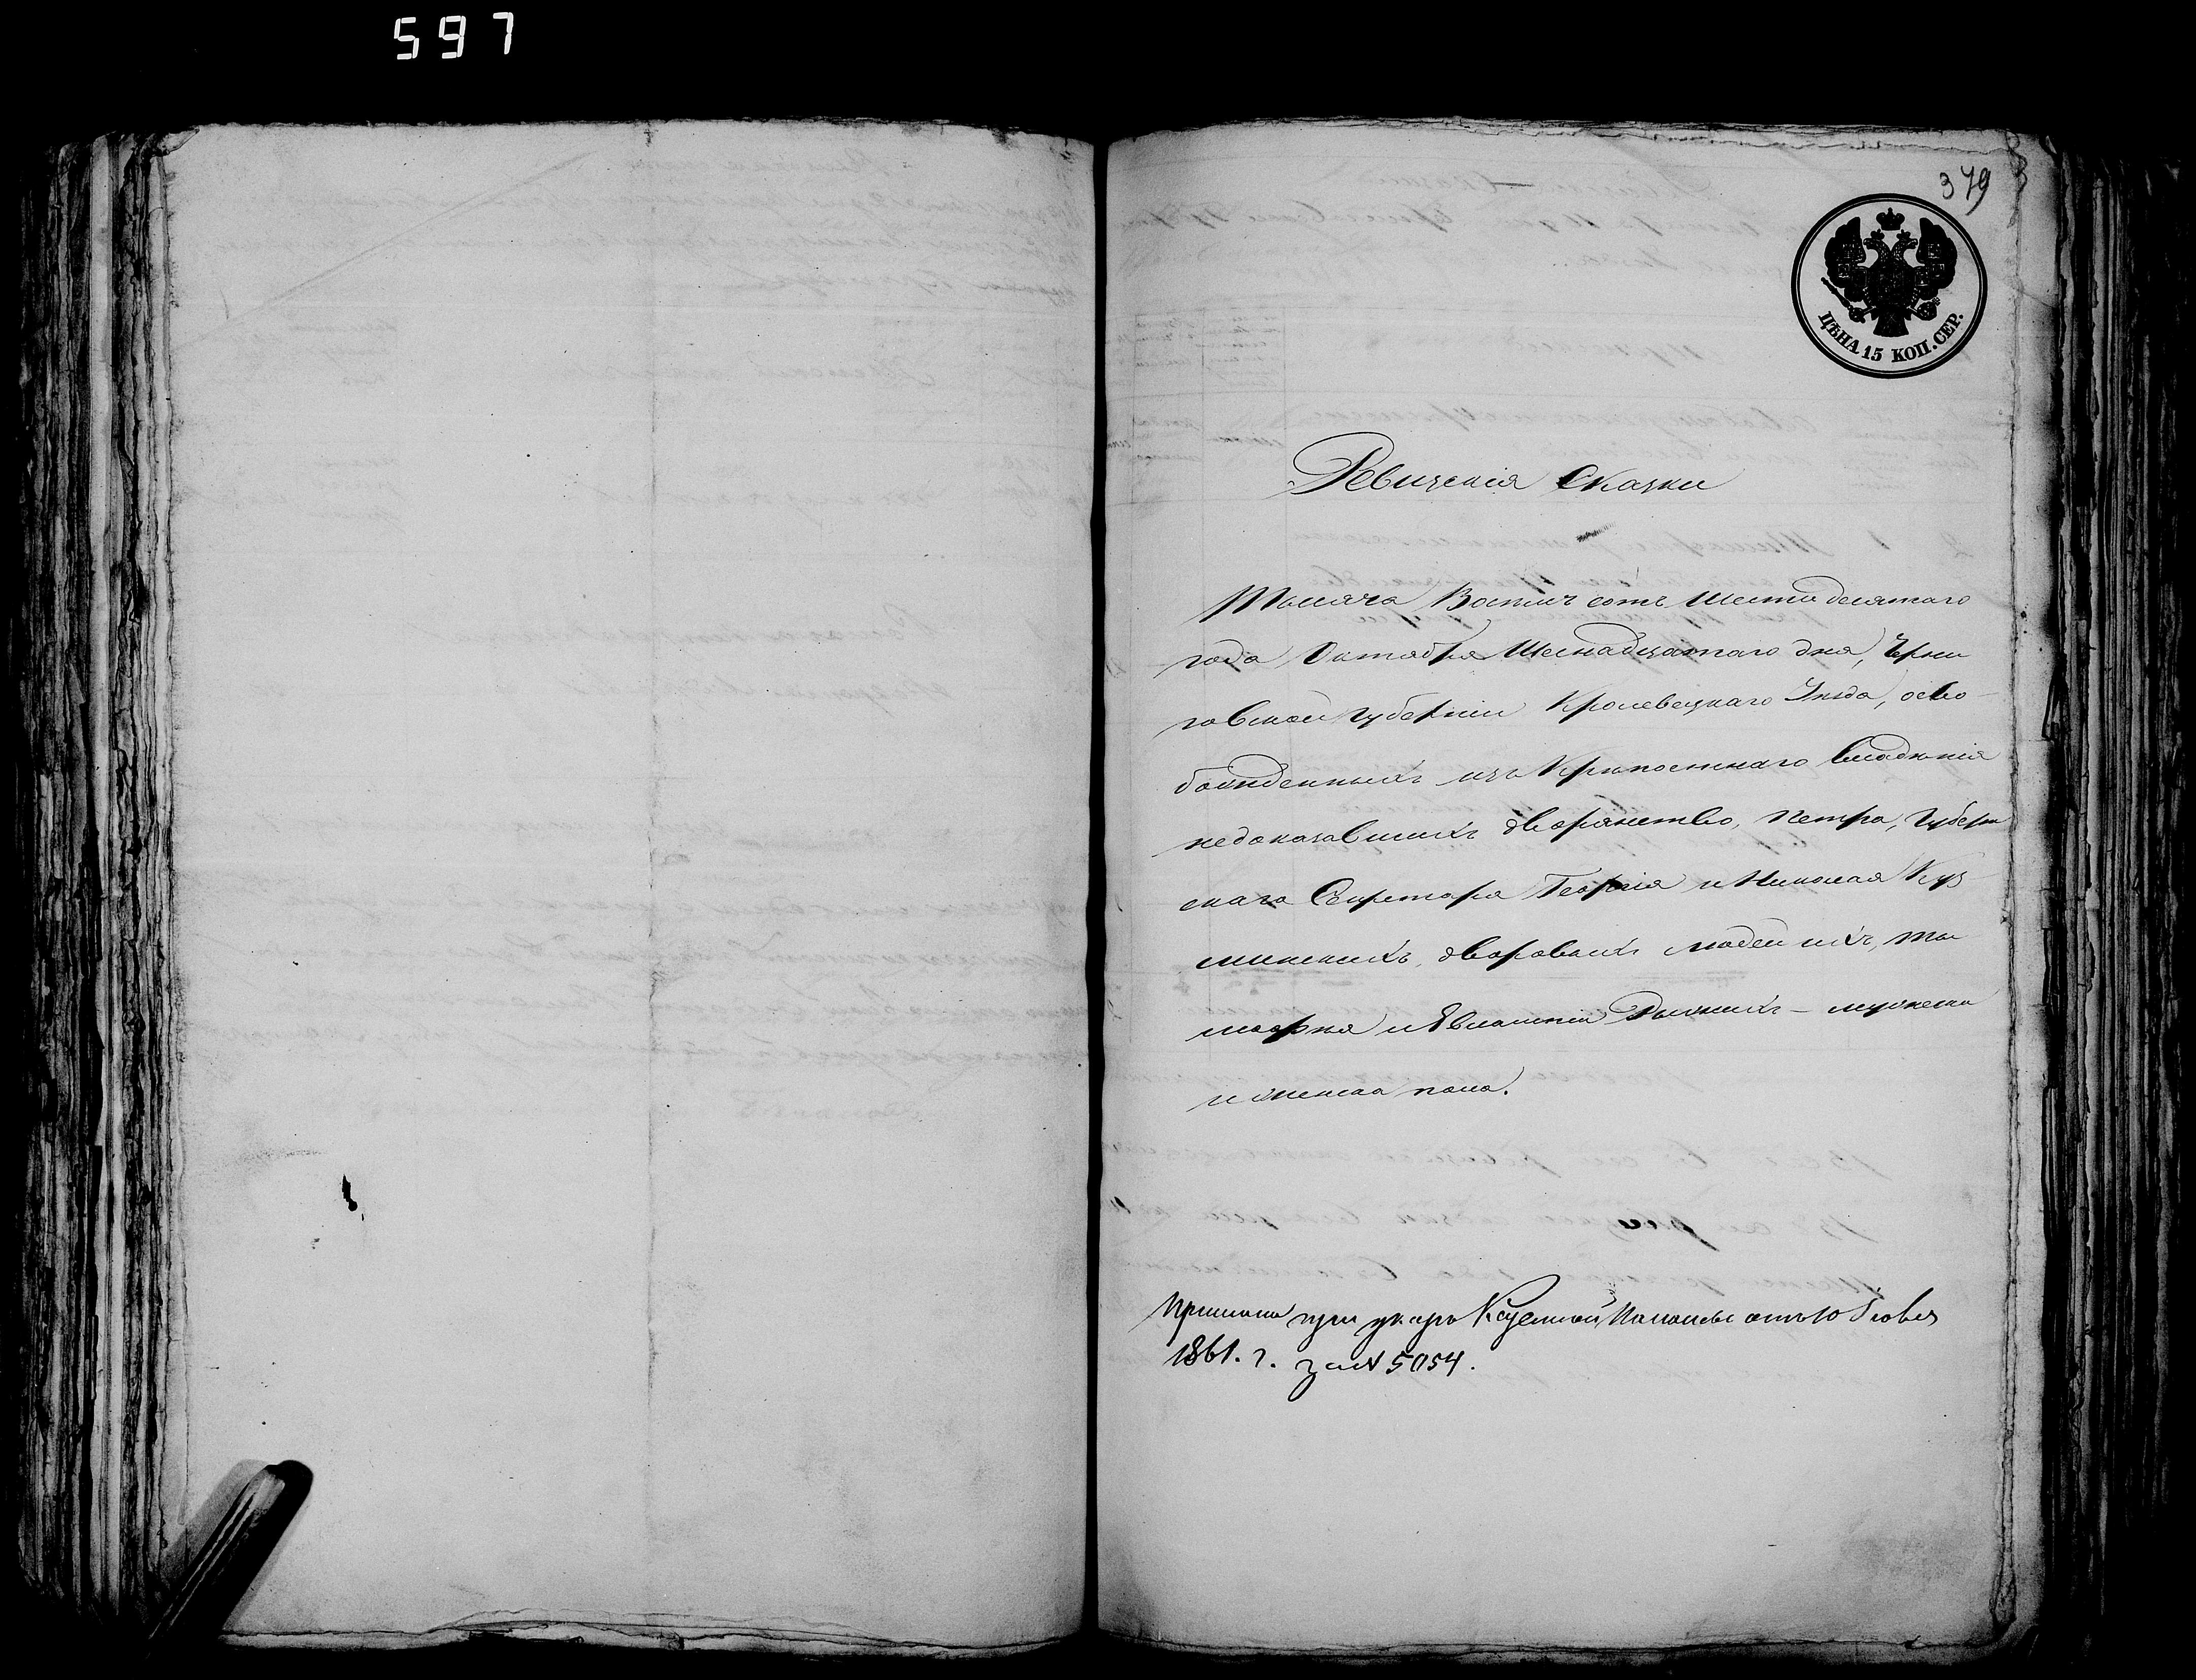 597
379
ЦѢНА 15 КОП. СЕР.
Ревизскія Сказки
Тысяча Восемь сотъ Шестидесятаго
года Октября Шеснадцатаго дня, Черни
говской Губерніи Кролевецкаго Уѣзда, осво-
божденныхъ изъ Крѣпостнаго владѣнія
недоказавшихъ дворянство, Петра, Губерн
скаго Секретаря Георгія и Николая Куз
минскихъ, дворовыхъ людей ихъ, Ти
мофея и мужеска
и женска пола.
Прислана при указѣ Казенной Палаты отъ 10
1861. г. за № 5054.